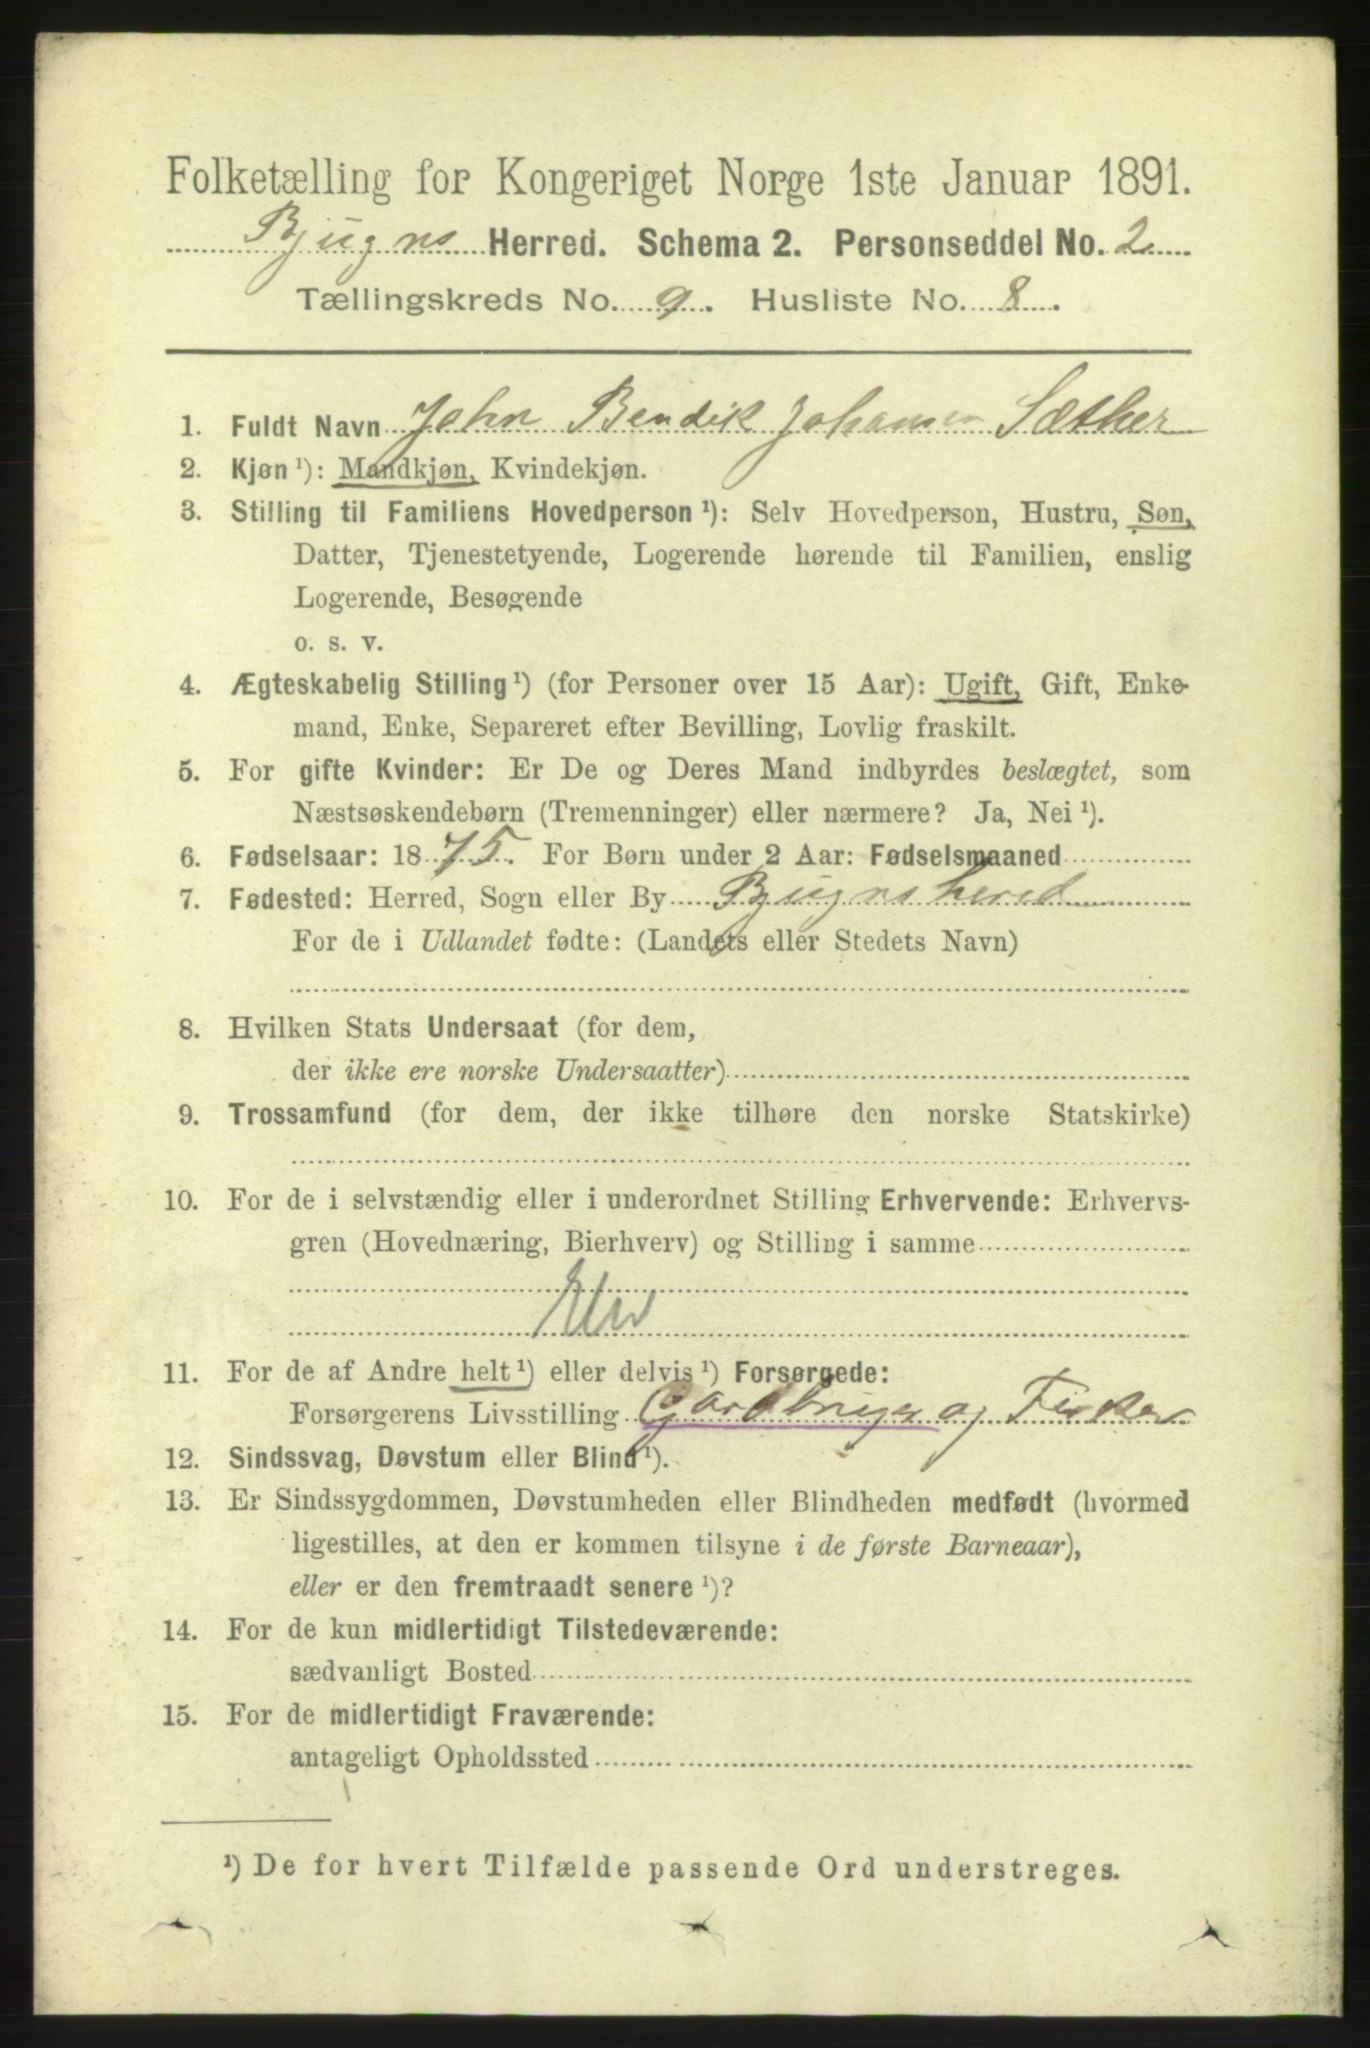 Folketælling for Kongeriget Norge 1ste Januar 1891.
Bjugns Herred. Schema 2. Personseddel No. 2.
Tællingskreds No. 9. Husliste No. 8.
1. Fuldt Navn John Bendik Johansen Sæther
2. Kjøn ¹): Mandkjøn, Kvindekjøn.
3. Stilling til Familiens Hovedperson ¹): Selv Hovedperson, Hustru, Søn,
Datter, Tjenestetyende, Logerende hørende til Familien, enslig
Logerende, Besøgende
o. s. v.
4. Ægteskabelig Stilling ¹) (for Personer over 15 Aar): Ugift, Gift, Enke-
mand, Enke, Separeret efter Bevilling, Lovlig fraskilt.
5. For gifte Kvinder: Er De og Deres Mand indbyrdes beslægtet, som
Næstsøskendebørn (Tremenninger) eller nærmere? Ja, Nei ¹).
6. Fødselsaar: 1875. For Børn under 2 Aar: Fødselsmaaned
7. Fødested: Herred, Sogn eller By Bjugns herred
For de i Udlandet fødte: (Landets eller Stedets Navn)
8. Hvilken Stats Undersaat (for dem,
der ikke ere norske Undersaatter)
9. Trossamfund (for dem, der ikke tilhøre den norske Statskirke)
10. For de i selvstændig eller i underordnet Stilling Erhvervende: Erhvervs-
gren (Hovednæring, Bierhverv) og Stilling i samme
11. For de af Andre helt ¹) eller delvis ¹) Forsørgede:
Forsørgerens Livsstilling Gardbruger og Fisker
12. Sindssvag, Døvstum eller Blind ¹).
13. Er Sindssygdommen, Døvstumheden eller Blindheden medfødt (hvormed
ligestilles, at den er kommen tilsyne i de første Barneaar),
eller er den fremtraadt senere ¹)?
14. For de kun midlertidigt Tilstedeværende:
sædvanligt Bosted
15. For de midlertidigt Fraværende:
antageligt Opholdssted
¹) De for hvert Tilfælde passende Ord understreges.